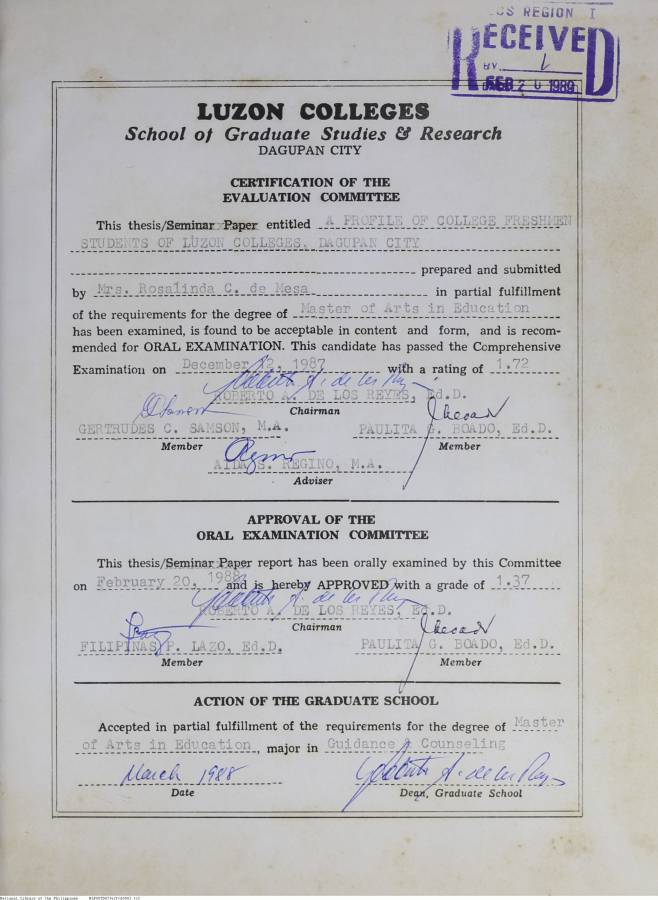 CS REGION I
RECEIVED
BY
FEB 20 1989
LUZON COLLEGES
School of Graduate Studies & Research
DAGUPAN CITY
CERTIFICATION OF THE
EVALUATION COMMITTEE
This thesis/Seminar Paper entitled A PROFILE OF COLLEGE FRESHMEN
STUDENTS OF LUZON COLLEGES, DAGUPAN CITY
prepared and submitted
by Mrs. Rosalinda C. de Mesa in partial fulfillment
of the requirements for the degree of Master of Arts in Education
has been examined, is found to be acceptable in content and form, and is recom-
mended for ORAL EXAMINATION. This candidate has passed the Comprehensive
Examination on December 12, 1987 with a rating of 1.72
ROBERTO A. DE LOS REYES, Ed.D.
Chairman
GERTRUDES C. SAMSON, M.A. PAULITA G. BOADO, Ed.D.
Member Member
AIDA S. REGINO, M.A.
Adviser
APPROVAL OF THE
ORAL EXAMINATION COMMITTEE
This thesis/Seminar Paper report has been orally examined by this Committee
on February 20, 1988 and is hereby APPROVED with a grade of 1.37
ROBERTO A. DE LOS REYES, Ed.D.
Chairman
FILIPINAS P. LAZO, Ed.D. PAULITA G. BOADO, Ed.D.
Member Member
ACTION OF THE GRADUATE SCHOOL
Accepted in partial fulfillment of the requirements for the degree of Master
of Arts in Education, major in Guidance & Counseling
March 1988
Date Dean, Graduate School
National Library of the Philippines